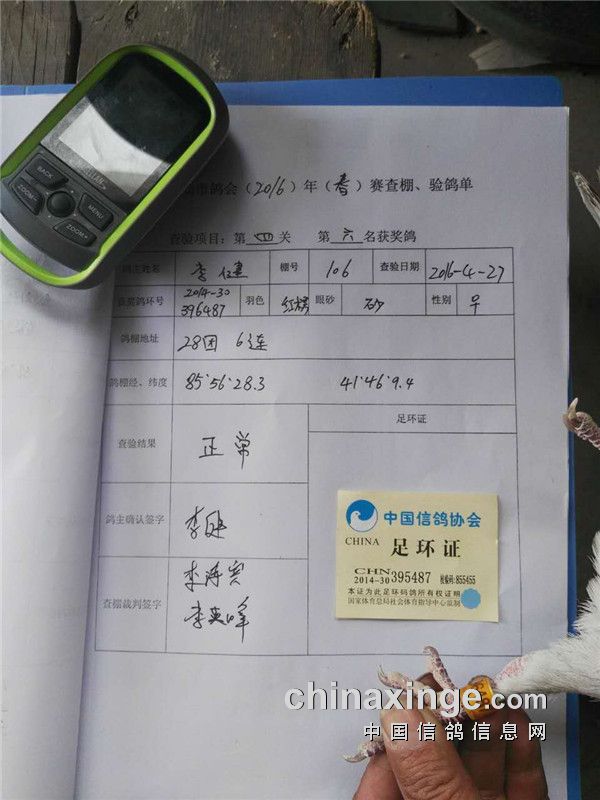 BACK
MENU
ZOOM-
ZOOM+
市鸽会(2016)年(春)赛查棚、验鸽单
查验项目:第四关 第六名获奖鸽
鸽主姓名 李健 棚号 106 查验日期 2016-4-27
获奖鸽环号 2014-30 396487 羽色 红楞 眼砂 砂 性别 早
鸽棚地址 28团 6连
鸽棚经、纬度 85°56'28.3 41°46'9.4
查验结果 正常
足环证
鸽主确认签字 李健
查棚裁判签字 李海宾
李英峰
中国信鸽协会
CHINA 足环证
CHN
2014-30 395487 校编码:855455
本证为此足环码鸽所有权证明
国家体育总局社会体育指导中心监制
chinaxinge.com
中国信鸽信息网